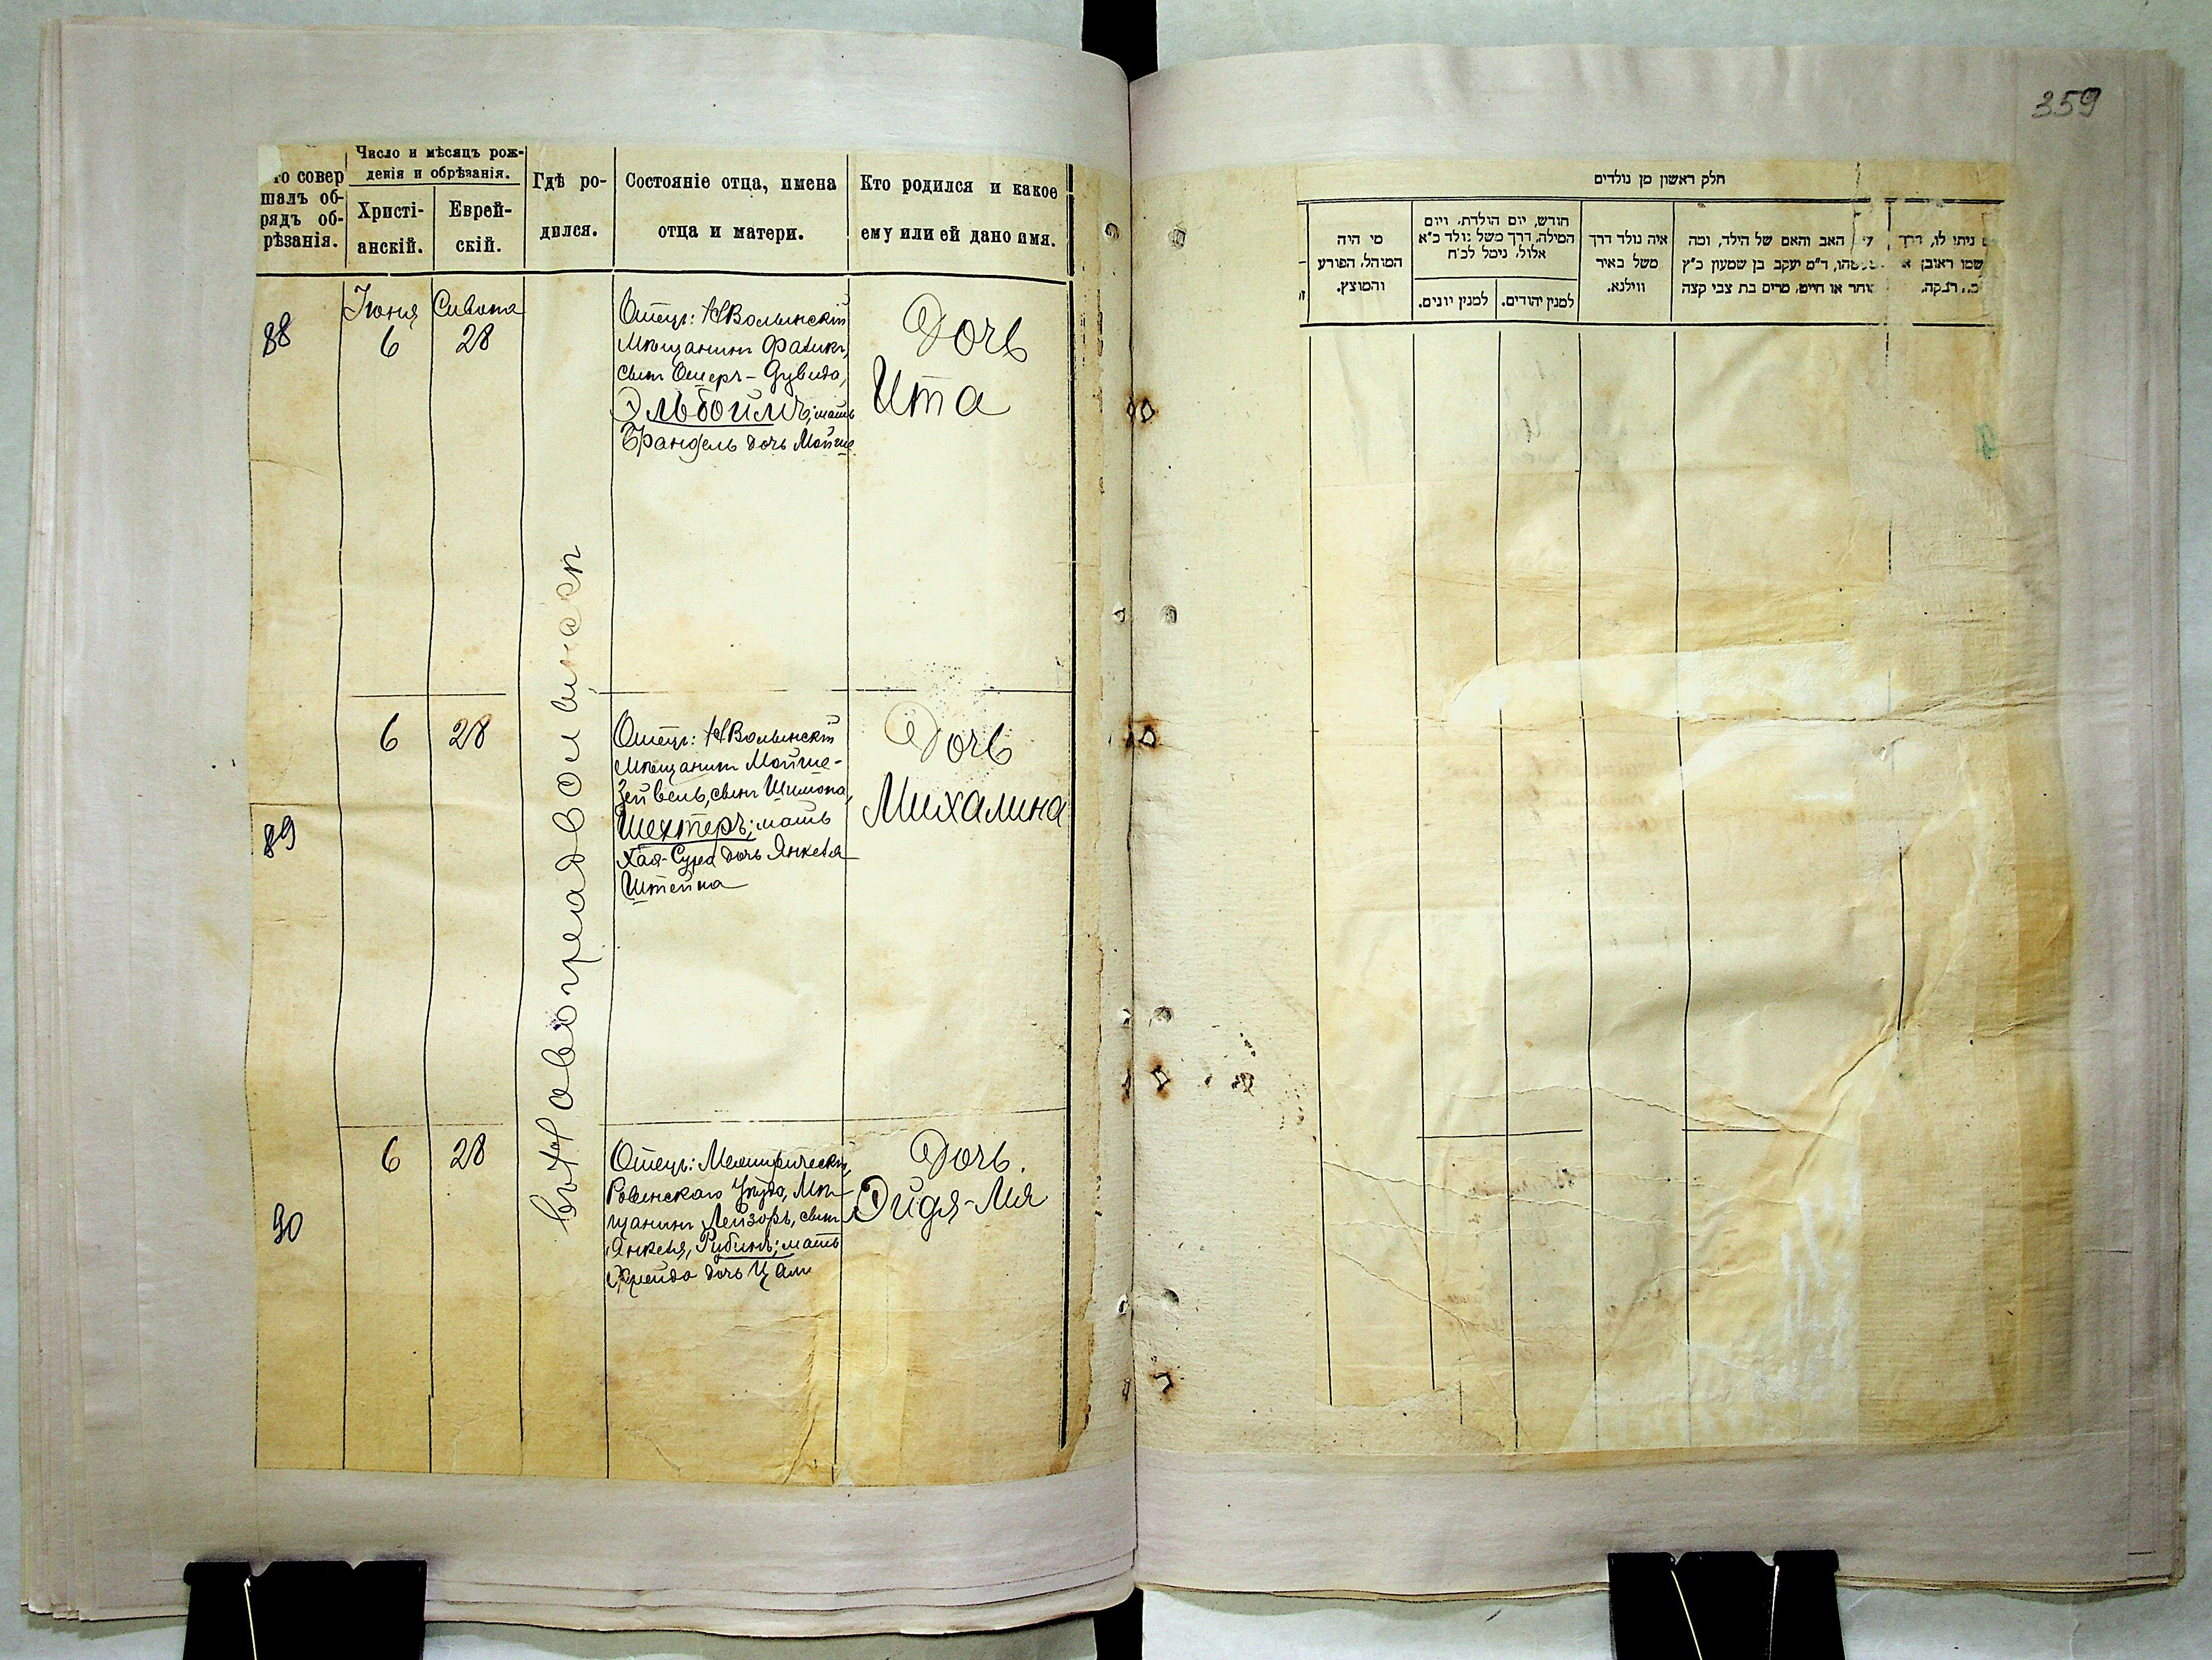 359
Кто совер
шалъ об-
рядъ об-
рѣзанія.
Число и мѣсяцъ рож-
денія и обрѣзанія.
Христі-
анскій.
Еврей-
скій.
Гдѣ ро-
дился.
Состояніе отца, имена
отца и матери.
Кто родился и какое
ему или ей дано имя.
88
Іюня
6
Сивона
28
Отецъ: НВолынскій
Мѣщанинъ Фатикъ,
сынъ Ошеръ-Дувида,
Эльбоймъ; мать
Брандель дочь Мойше
Дочь
Ита
въ Новоградволынскѣ
89
6
28
Отецъ: НВолынскій
Мѣщанинъ Мойше-
Зейвель, сынъ Шимона,
Шехтеръ; мать
Хая-Сура дочь Янкеля
Штейна
Дочь
Михалина
90
6
28
Отецъ: Межиричскій,
Ровенскаго Уѣзда, Мѣ-
щанинъ Лейзоръ, сынъ
Янкеля, Рубинъ; мать
Фрейда дочь Цали
Дочь.
Эйдя-Лия
חלק ראשון מן נולדים
מי היה
המוהל, הפורע
והמוצץ.
חודש, יום הולדת, ויום
המילה, דרך משל נולד כ"א
אלול, נימל לכ"ח
למנין יונים.
למנין יהודים.
איה נולד דרך
משל באיר
ווילנא.
האב והאם של הילד, ומה
ד"מ יעקב בן שמעון כ"ץ
סוחר או חייט, מרים בת צבי קצה
ניתן לו, דרך
שמו ראובן